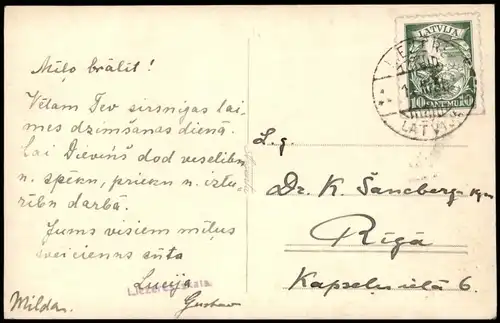 Mīļo brālīt!
Vēlam Tev sirsnīgas lai-
mes dzimšanas dienā.
Lai Dieviņš dod veselību
n. spēku, prieku n. iztu-
rību darbā.
Jums visiem mīļus
sveicienus sūta
Lucija
Gustav
Milda.
LATVIJA
10 SANTIMU 10
LATVIJA
L. g.
Dr. K. Šancberg
Rīgā
Kapseļu ielā 6.